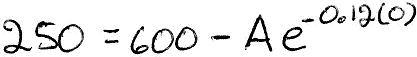 250 = 600 - Ae^{-0.12(0)}